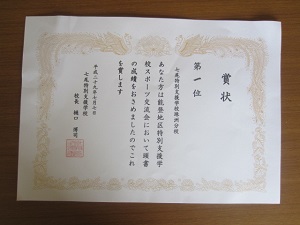 賞状
第一位
七尾特別支援学校珠洲分校
あなた方は能登地区特別支援学
校スポーツ交流会において頭書
の成績をおさめましたのでこれ
を賞します
平成二十九年七月七日
七尾特別支援学校
校長 樋口 博司